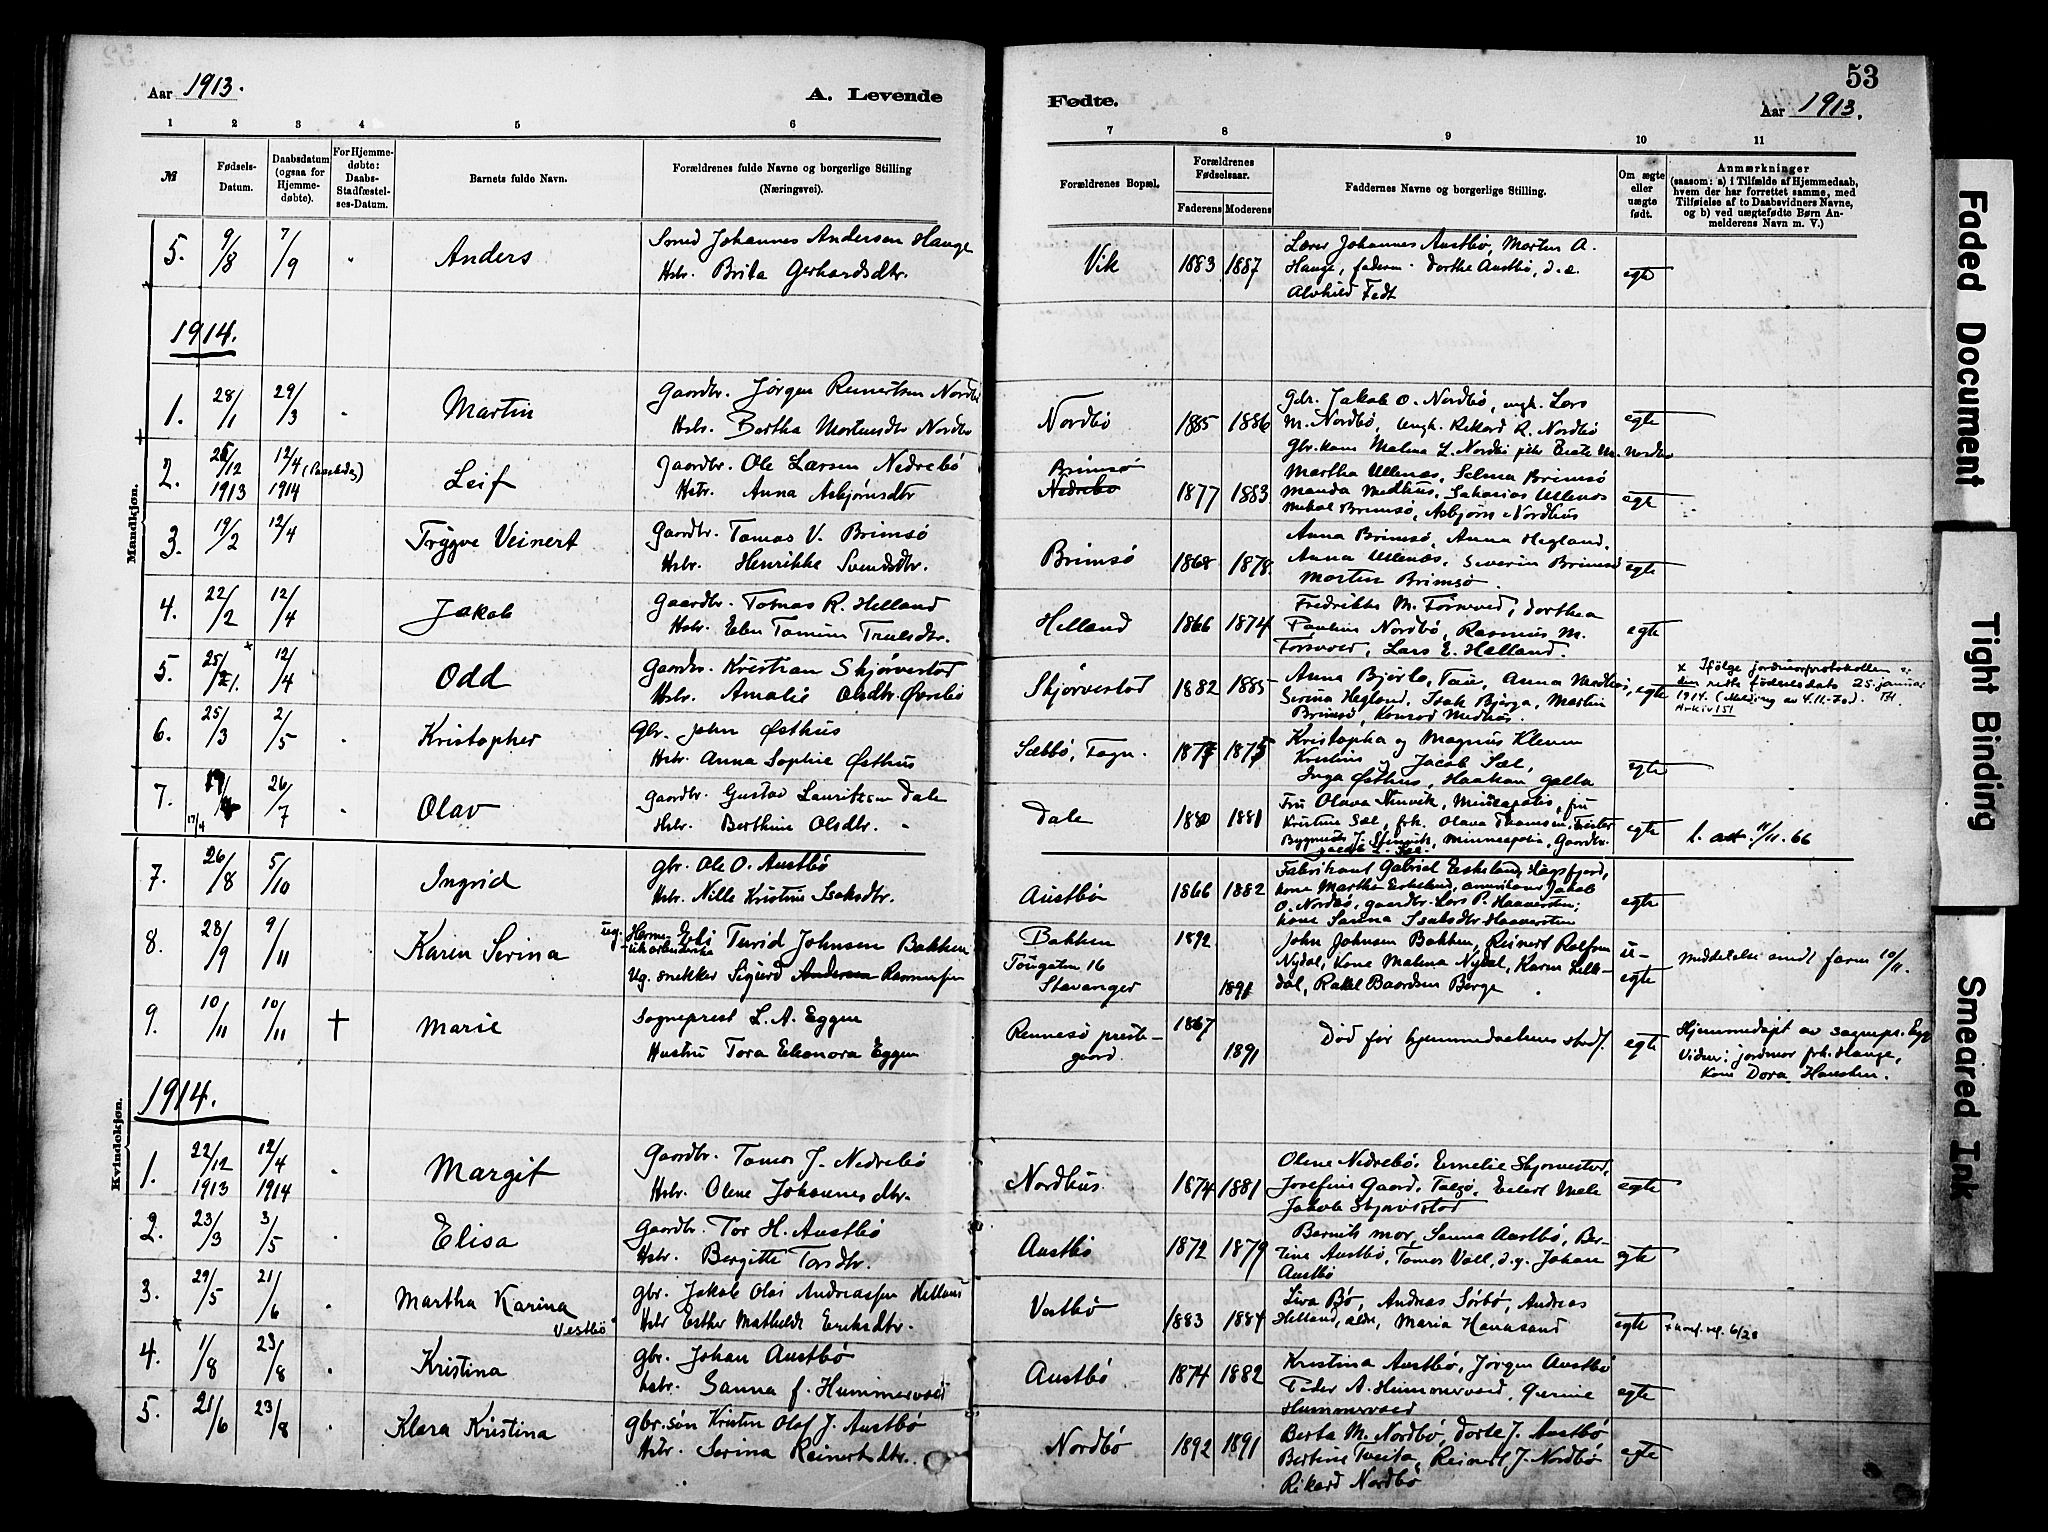 53
Aar 1913.
A. Levende
Fødte.
Aar 1913.
1 2 3 4 5 6
7 8 9 10 11
№
Fødsels-Datum.
Daabsdatum (ogsaa for Hjemmedøbte).
For Hjemmedøbte: Daabs-Stadfæstelses-Datum.
Barnets fulde Navn.
Forældrenes fulde Navne og borgerlige Stilling
(Næringsvei).
Forældrenes Bopæl.
Forældrenes Fødselsaar.
Faderens Moderens
Faddernes Navne og borgerlige Stilling.
Om ægte eller uægte født.
Anmærkninger
(saasom: a) i Tilfælde af Hjemmedaab,
hvem der har forrettet samme, med
Tilføielse af to Daabsvidners Navne,
og b) ved uægtefødte Børn Anmelderens Navn m. V.)
Mandkjøn.
5. 9/8 7/9 " Anders
Smed Johannes Andersen Hauge
Hstr. Brita Gerhardsdtr.
Vik 1883 1887
Lærer Johannes Austbø, Morten A.
Hauge, faderen. Dorthe Austbø, d.e.
Alvhild Fedt
egte
1914.
1. 28/1 29/3 " Martin
Gaardbr. Jørgen Reinertsen Nordbø
Hstr. Bertha Mortensdtr Nordbø
Nordbø 1885 1886
Gdr. Jakob O. Nordbø, ungk. Lars
M. Nordbø, Ungk. Rikard R. Nordbø
egte
2. 12 1913 12/4 1914 Leif
Gaardbr. Ole Larsen Nedrebø
Hstr. Anna Asbjørnsdtr
Brimsø
Nedrebø
1877 1883
Martha Ullenæs, Selma Brimsø
Manda Medhus, Sakarias Ullenæs
Mikal Brimsø, Asbjørn Nordhus
egte
3. 19/2 12/4 Trygve Veinert
Gaardbr. Tomas V. Brimsø
Hstr. Henrikke Svendsdtr.
Brimsø 1868 1878
Anna Brimsø, Anna Hegland,
Anna Ullenæs, Severin Brimsø
Morten Brimsø.
egte
4. 22/2 12/4 Jakob
Gaardbr. Tomas R. Helland
Hstr. Truelsdtr.
Helland 1866 1874
Fredrikke M. Dorthea
Pauline Nordbø, Rasmus M.
Lars E. Helland.
egte
5. 25 12/4 Odd
Gaardbr. Kristian Skjørvestad
Hstr. Amalie Olsdtr. Øvrebø
Skjørvestad 1882 1885
Anna Bjørlo, Tau, Anna Medhus,
Serina Hegland, Isak Bjerga, Martin
Brimsø, Konrad Medhus.
egte
x Ifølge jordmorprotokollen er
den rette fødselsdato 25. januar
1914. (Melding av 4.11.70). TH.
Arkiv 151
6. 25/3 2/5 " Kristopher
Gbr. John Østhus
Hstr. Anna Sophie Østhus
Sæbbø, Fogn. 1875
Kristopha og Magnus Kleven
Kristine og Jacob Sæl,
Inga Østhus, Haakon Galta
egte
7. 17/4 26/7 " Olav
Gaardbr. Gustav Lauritzen Dale
Hstr. Berthine Olsdtr. "
Dale 1880 1881
Fru Olava Stenvik, Minneapolis, fru
Kristine Sæl, frk. Olava Thomsen,
Bygmester J. Stenvik, Minneapolis, Gaardbr.
egte
l. att. 11/11.66
Kvindekjøn.
7. 26/8 5/10 Ingrid
gbr. Ole O. Austbø
Hstr. Nille Kristine Isaksdtr.
Austbø 1866 1882
Fabrikant Gabriel Eskeland, Høgsfjord,
kone Martha Eskeland, amerikaner Jakob
O. Nordbø, gaardbr. Lars P. Haaversten,
kone Sanna Isaksdtr. Haaversten
egte
8. 28/9 9/11 Karen Serina
ug. Turid Johnsen Bakken
Ug. snekker Sigurd Andersen Rasmussen
Bakken
Tougaten 16
Stavanger
1892
1891
John Johnsen Bakken, Reinert Rolfsen
Nydal, Kone Malena Nydal, Karen
Rakel Baardsen Berge
u-
egte
meddelelse sendt farm 10/11.
9. 10/11 10/11 † Marie
Sogneprest L. A. Eggen
Hustru Tora Eleonora Eggen
Rennesø preste-
gaard.
1867
1891
Død før hjemmedaabens stadf.
egte
Hjemmedøpt av sognepr. Egg
Vidner: jordmor frk. Hauge,
Kone Dora Hansten.
1914.
1. 22/12 1913 12/4 1914 " Margit
Gaardbr. Tomas J. Nedrebø
Hstr. Olene Johannesdtr.
Nordhus. 1874 1881
Olene Nedrebø, Emelie Skjørvestad,
Josefine Gaard, Talgø, Eilert Mele
Jakob Skjørvestad
egte
2. 23/3 3/5 " Elisa
Gaardbr. Tor H. Austbø
Hstr. Bergitte Torsdtr.
Austbø 1872 1879
Barnets mor, Sanna Austbø, Ber-
tine Austbø, Tomas Voll, d.y. Johan
Austbø
egte
3. 29/5 21/6 " Martha Karina
Vestbø
gbr. Jakob Olai Andreassen Helland
Hstr Esther Mathilde Eriksdtr.
Vestbø 1883 1884
Liva Bø, Andreas Sørbø, Andreas
Helland, eldre, Maria Hanasand
egte
4. 1/8 23/8 " Kristina
gbr. Johan Austbø
hstr. Sanna f. Hummervold
Austbø 1874 1882
Kristina Austbø, Jørgen Austbø
Peder A. Hummervold, Gurine
Hummervold
egte
5. 21/6 23/8 " Klara Kristina
gbr.søn Kristen Olaf J. Austbø
Hstr. Serina Reinertsdtr.
Nordbø 1892 1891
Berta M. Nordbø, Dorte J. Austbø
Bertine Tveita, Reinert J. Nordbø
Rikard Nordbø
egte
Faded Document
Tight Binding
Smeared Ink